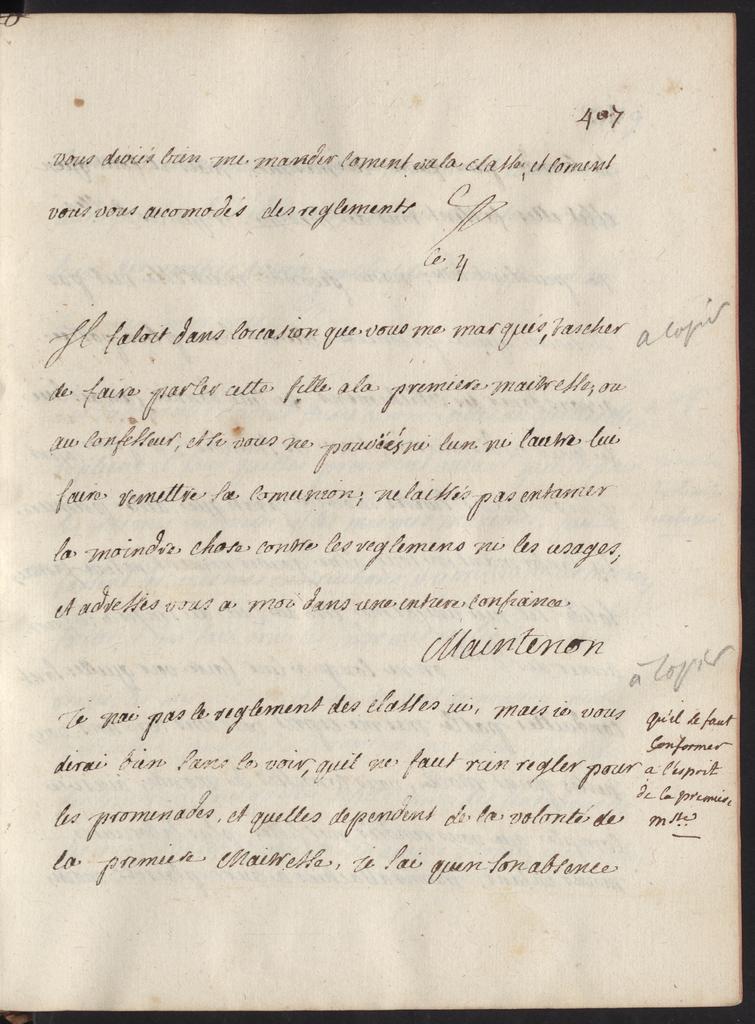 407
vous deviés bien me mander coment va la classe, et coment
vous vous acomodés des reglements
ce 4
Il faloit dans locasion que vous me marqués, tascher
a copier
de faire parler cette fille a la premiere maitresse, ou
au confesseur, et si vous ne pouviés ni lun ni lautre lui
faire remettre sa comunion; ne laissés pas entamer
la moindre chose contre les reglemens ni les usages,
et adressés vous a moi dans une entiere confiance
Maintenon
à copier
Je nai pas le reglement des classes ici, mais je vous
dirai bien sans le voir, quil ne faut rien regler pour
les promenades, et quelles dependent de la volonté de
la premiere Maitresse, je sai quen son absence
qu'il se faut
conformer
a l'esprit
de la premiere
mtse